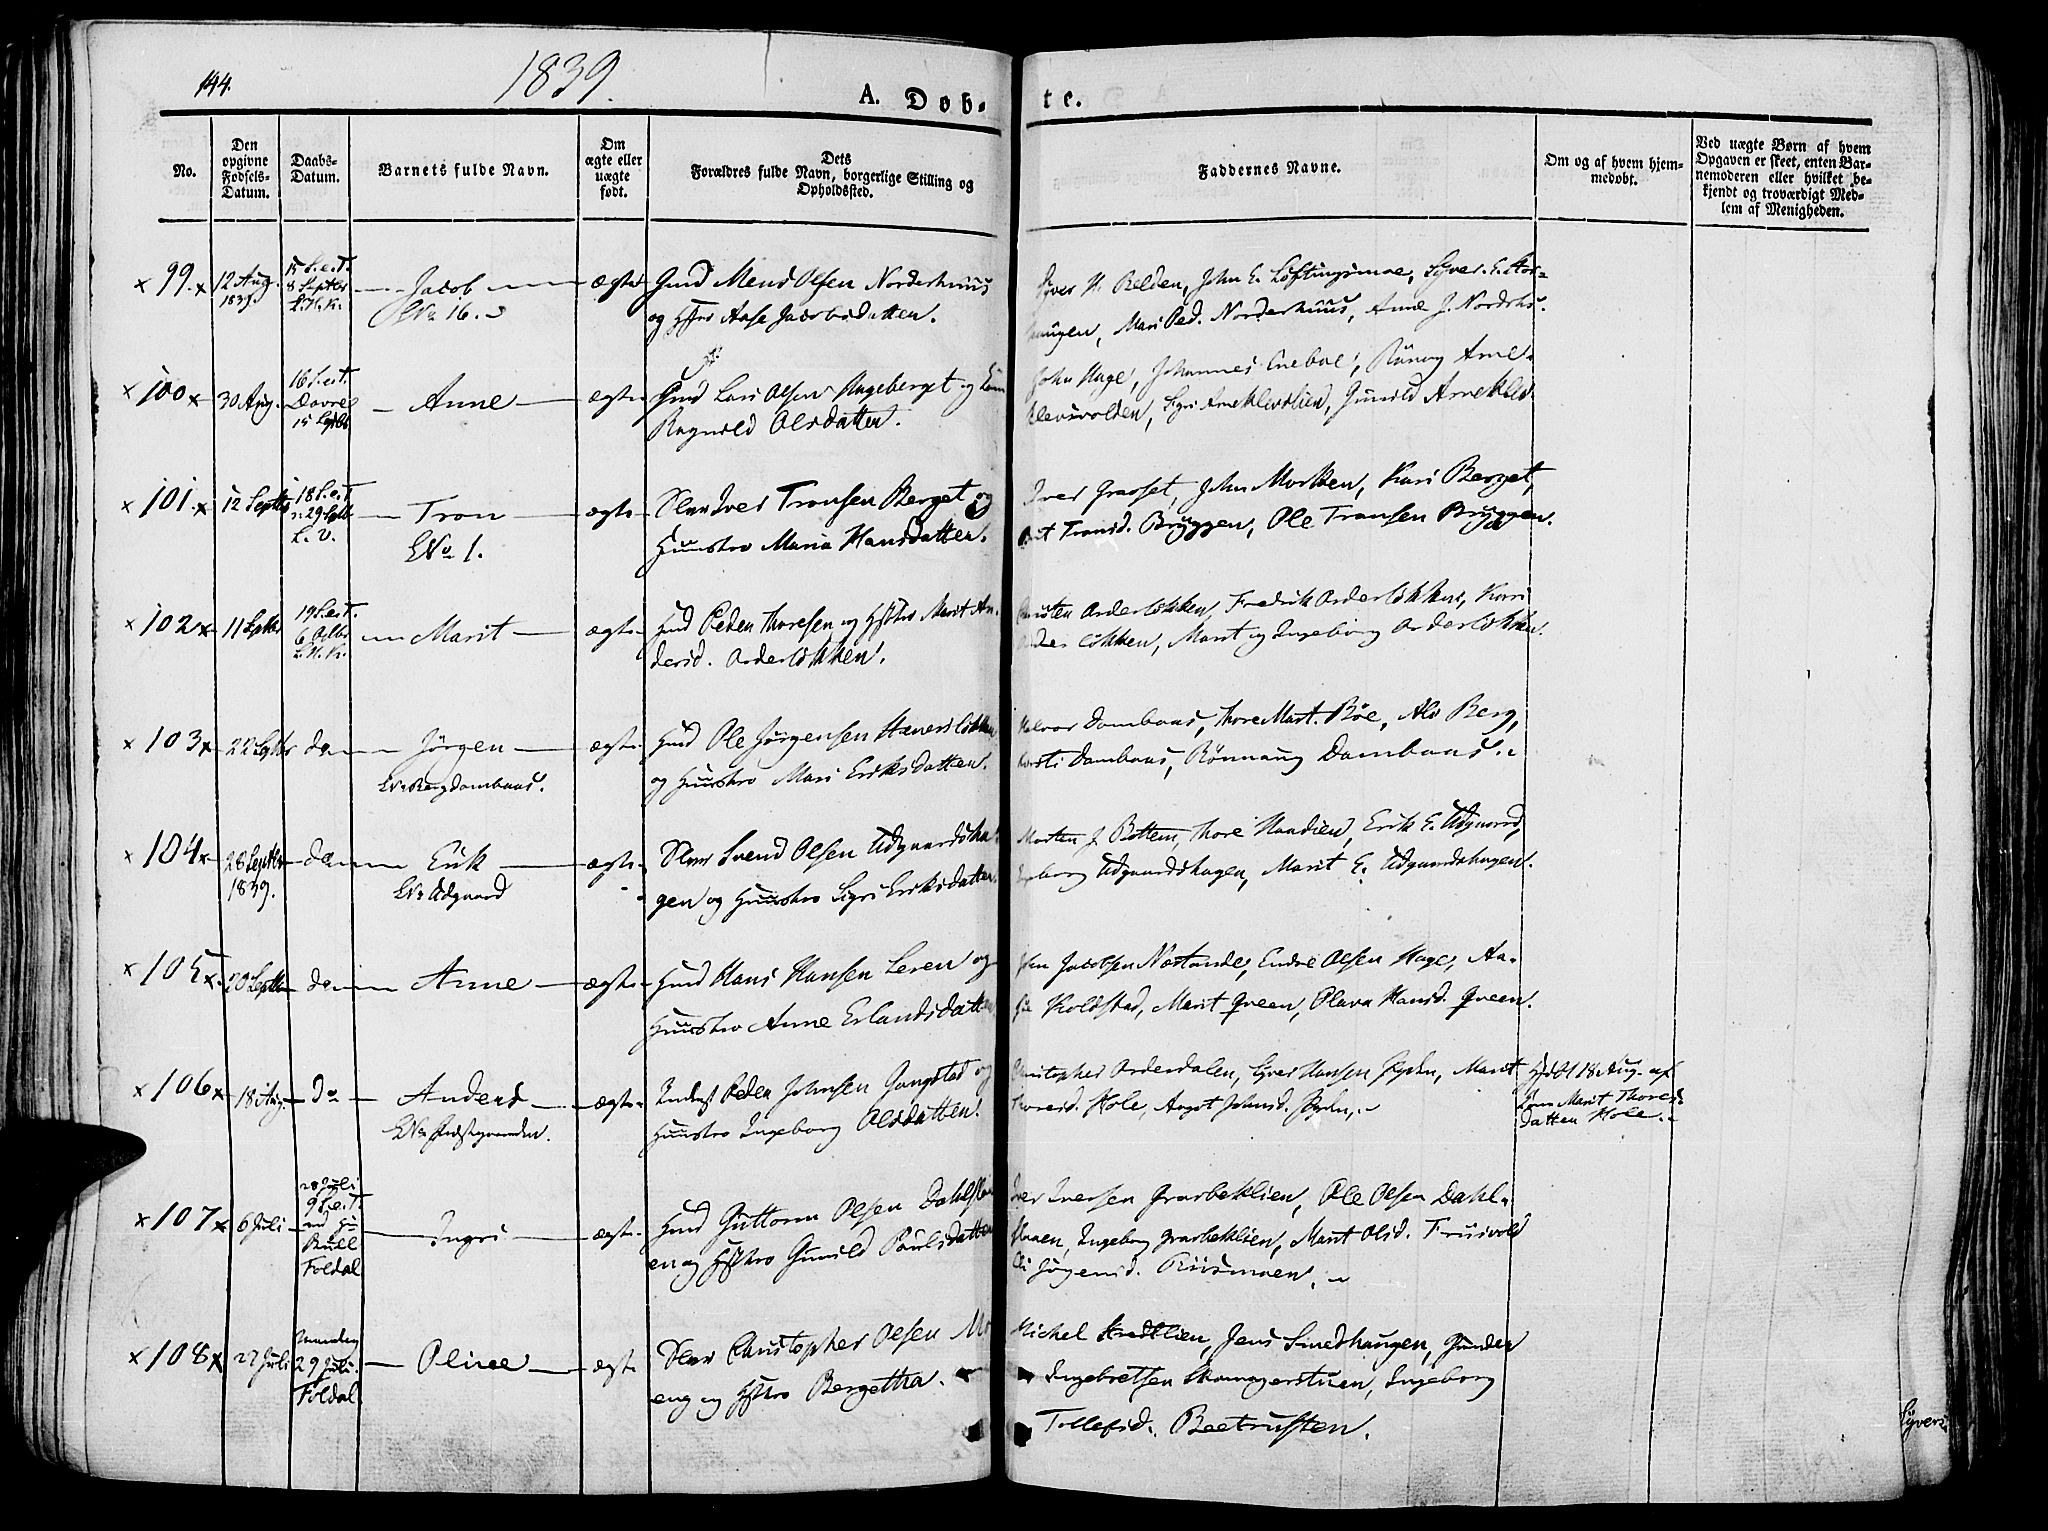 144.
1839.
A. Døb-
te.
No.
Den opgivne Fødsels-Datum.
Daabs-Datum.
Barnets fulde Navn.
Om ægte eller uægte født.
Dets Forældres fulde Navn, borgerlige Stilling og Opholdssted.
Faddernes Navne.
Om og af hvem hjem-medøbt.
Ved uægte Børn af hvem Opgaven er skeet, enten Bar-nemoderen eller hvilket be-kjendt og troværdigt Med-lem af Menigheden.
× 99. × 12 Aug. 1839. 15 S. e. T. 8 Septbr L. H. K. — Jacob — ægte
No 16.
Gmd Mens Olsen Norderhuus
og Hstro Aase Jacobsdatten.
Syver H. Belden, John E. Løftingsmoe, Syver E. Stor-
haugen, Mari Ped. Norderhuus, Anne J. Nordrhs.
× 100 × 30 Aug. 16 S. e. T. Dovre 15 Sptbr — Anne — ægte
Gmd Lars Olsen Hageberget og Kone
Ragnild Olsdatten.
John Hage, Johannes Eneboe, Rønnog Arne-
klevsvolden, Sigri Arneklevslien, Gunild Arneklev.
× 101. × 12 Septbr 18 S. e. T. 29 Sptbr L. V. — Tron — ægte
No 1.
Iver Tronsen Berget og
Huustro Maria Hansdatten.
Iver Graaset, John Morken, Kari Berget,
Brit Tronsd. Bryggen, Ole Tronsen Bryggen.
× 102 × 11 Septbr 19 S. e. T. 6 Octbr L. H. K. — Marit — ægte
Gmd Peden Thoresen og Hstro Marit An-
dersd. Anderløkken.
Christen Anderløkken, Fredrik Anderløkken, Kari
Anderløkken, Marit og Ingeborg Anderløkken.
× 103 × 22 Sptbr do — Jørgen — ægte
No Berg Dombaas.
Hmd Ole Jørgensen Hanersløkken
og Huustro Mari Eriksdatten.
Halvor Dombaas, Thore Mart. Bøe, Ale Berg,
Kersti Dombaas, Rønnaug Dombaas.
× 104 × 28 Septbr 1839. do — Erik — ægte
No Udgaard
Svend Olsen Udgaardsha-
gen og Huustro Sigri Eriksdatten.
Morten J. Bottem, Thore Haadien, Erik E. Udgaard,
Ingeborg Udgaardshagen, Marit E. Udgaardshagen.
× 105 × 20 Septbr do — Anne — ægte
Hmd Hans Hansen Leren og
Huustro Anne Erlandsdatten
John Jacobsen Norstande, Endre Olsen Hage, Aa-
se Koldstad, Marit Qveen, Olava Hansd. Qveen.
× 106 × 18 Aug. do — Anders — ægte
Inderst Peden Johnsen Gangstad og
Huustro Ingeborg Olsdatten.
Christopher Anderdalen, Syver Hansen, Marit
Thoresd. Hole, Angot Johnsd.
Hjdøbt 18 Aug. af
Kone Marit Thores-
datten Hole.
× 107 × 6 Juli 28 Juli 9 S. e. T. ved Hr Bull Foldal — Ingri — ægte
Hmd Guttorm Olsen Dahlsla-
en og Hstro Gunild Paulsdatten
Iver Iversen Grarbeklien, Ole Olsen Dahl-
slaaen, Ingeborg Grarbeklien, Marit Olsd. Friisvold
Jørgensd. Riismoen.
× 108 × 27 Juli Mandag 29 Juli. Foldal — Oline — ægte
Christopher Olsen Mo-
eng og Hstro Bergetha.
Michel Kredklien, Jens Smedhaugen, Gunder
Ingebretsen Skomagerstuen, Ingeborg
Tollefsd. Beetrusten.
Syvers